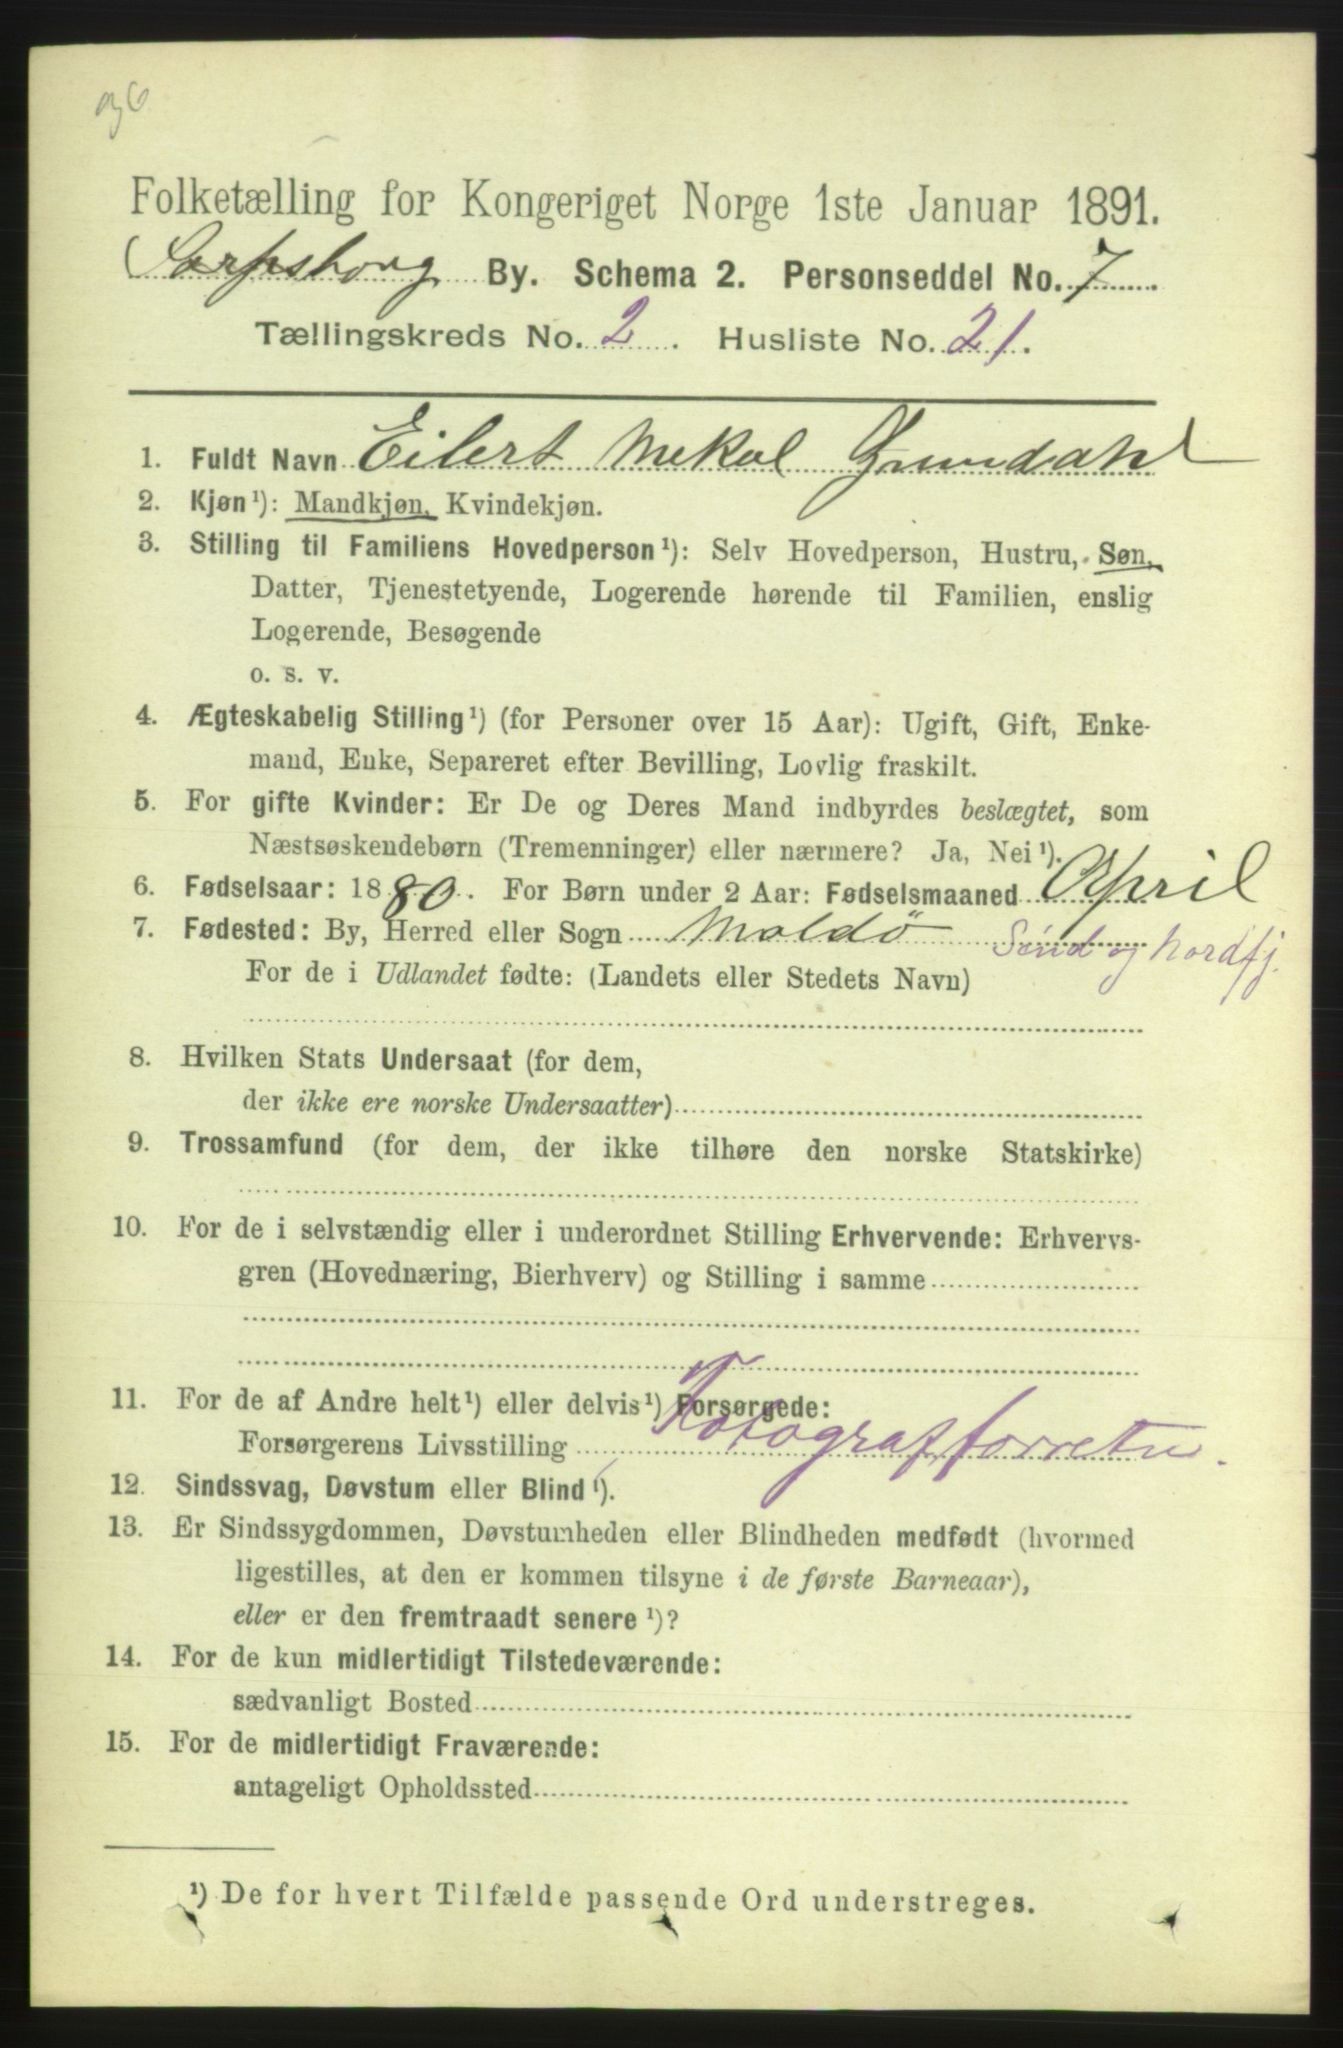 36
Folketælling for Kongeriget Norge 1ste Januar 1891.
Sarpsborg By. Schema 2. Personseddel No. 7
Tællingskreds No. 2. Husliste No. 21.
1. Fuldt Navn Eilert Mekal Grundahl
2. Kjøn¹): Mandkjøn, Kvindekjøn.
3. Stilling til Familiens Hovedperson¹): Selv Hovedperson, Hustru, Søn,
Datter, Tjenestetyende, Logerende hørende til Familien, enslig
Logerende, Besøgende
o. s. v.
4. Ægteskabelig Stilling¹) (for Personer over 15 Aar): Ugift, Gift, Enke-
mand, Enke, Separeret efter Bevilling, Lovlig fraskilt.
5. For gifte Kvinder: Er De og Deres Mand indbyrdes beslægtet, som
Næstsøskendebørn (Tremenninger) eller nærmere? Ja, Nei¹).
6. Fødselsaar: 1880. For Børn under 2 Aar: Fødselsmaaned April
7. Fødested: By, Herred eller Sogn Moldö Sönd og Nordfj.
For de i Udlandet fødte: (Landets eller Stedets Navn)
8. Hvilken Stats Undersaat (for dem,
der ikke ere norske Undersaatter)
9. Trossamfund (for dem, der ikke tilhøre den norske Statskirke)
10. For de i selvstændig eller i underordnet Stilling Erhvervende: Erhvervs-
gren (Hovednæring, Bierhverv) og Stilling i samme
11. For de af Andre helt¹) eller delvis¹) Forsørgede:
Forsørgerens Livsstilling Fotografforretn.
12. Sindssvag, Døvstum eller Blind¹).
13. Er Sindssygdommen, Døvstumheden eller Blindheden medfødt (hvormed
ligestilles, at den er kommen tilsyne i de første Barneaar),
eller er den fremtraadt senere¹)?
14. For de kun midlertidigt Tilstedeværende:
sædvanligt Bosted
15. For de midlertidigt Fraværende:
antageligt Opholdssted
¹) De for hvert Tilfælde passende Ord understreges.